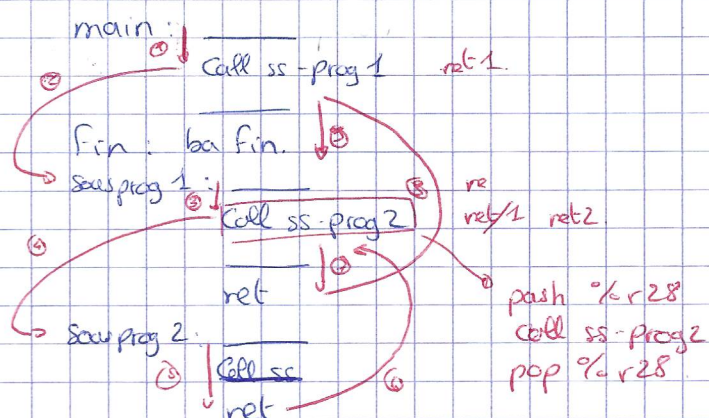 main :
①
Call ss-prog 1 ret 1.
②
Fin : ba fin.
sousprog 1 :
③
⑧
re
Call ss-prog 2 ret/1 ret2.
④
ret
push % r28
call ss-prog2
pop % r28
sousprog 2.
⑤
Call ss
⑥
ret